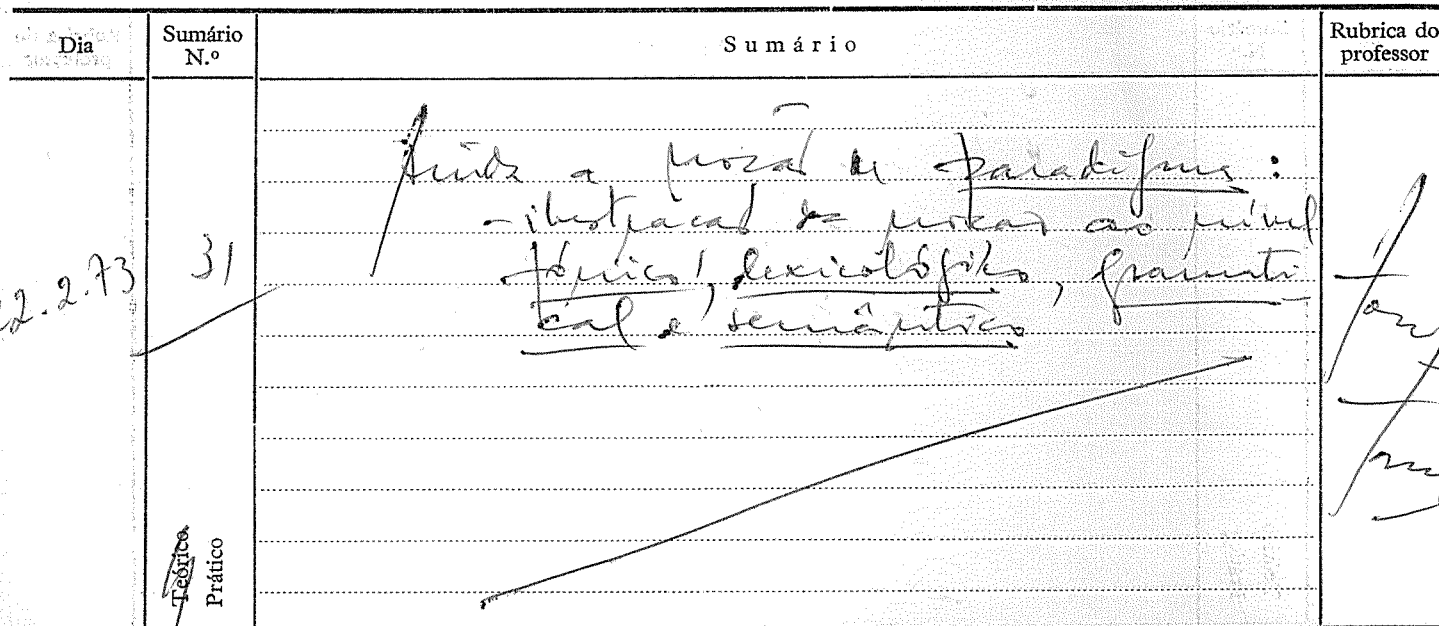 Dia
Sumário N.º
Sumário
Rubrica do professor
22.2.73
31
Ainda a noção de paradigma:
- ilustração da noção ao nível
fónico, lexicológico, gramati
cal e semântico
Teórico
Prático